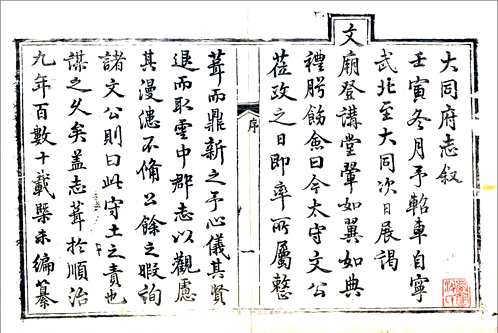 大同府志叙
壬寅冬月予軺車自寧
武北至大同次日展謁
文廟登講堂鞏如翼如典
禮飭僉曰今太守文公
莅政之日即率所屬整
序 一
葺而鼎新之予心儀其賢
退而取雲中郡志以觀慮
其漫漶不備公餘之暇詢
諸文公則曰此守土之責也
謀之久矣盖志葺於順治
九年百數十載槩未編纂